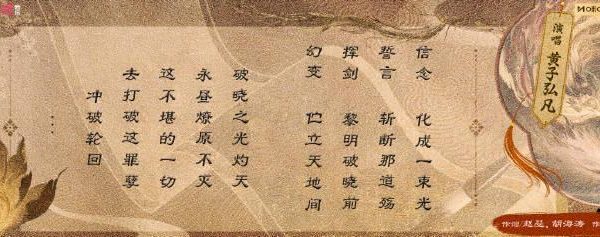 信念 化成一束光
誓言 斩断那道殇
挥剑 黎明破晓前
幻变 伫立天地间
破晓之光灼天
永昼燎原不灭
这不堪的一切
去打破这罪孽
冲破轮回
...
演唱 黄子弘凡
作曲 赵瑟、胡海涛 作